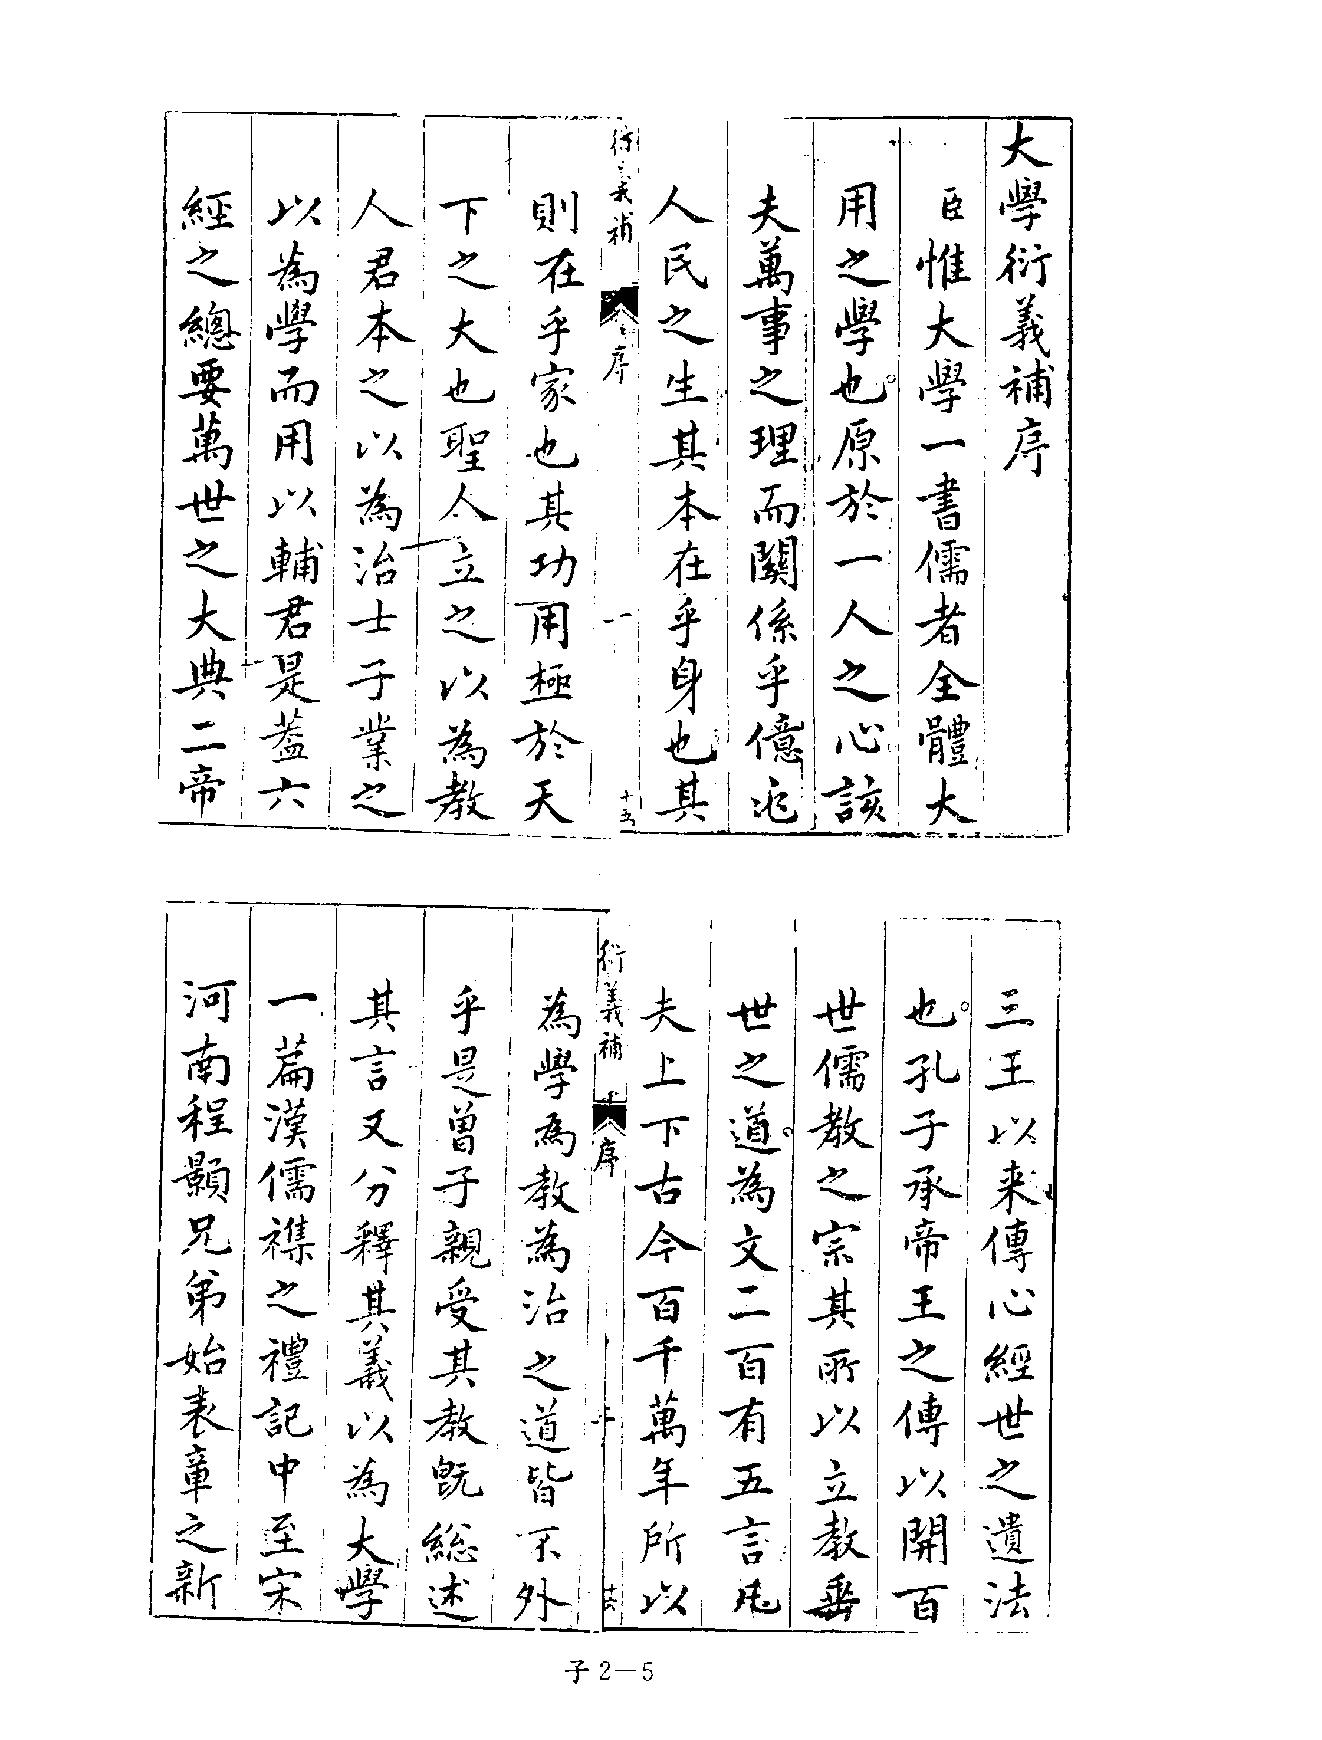 大學衍義補序
臣惟大學一書儒者全體大
用之學也原於一人之心該
夫萬事之理而關係乎億兆
人民之生其本在乎身也其
衍義補
序
一
十五
則在乎家也其功用極於天
下之大也聖人立之以為教
人君本之以為治士子業之
以為學而用以輔君是蓋六
經之總要萬世之大典二帝
三王以来傳心經世之遺法
也孔子承帝王之傳以開百
世儒教之宗其所以立教垂
世之道為文二百有五言凡
夫上下古今百千萬年所以
衍義補
序
十六
為學為教為治之道皆不外
乎是曾子親受其教既総述
其言又分釋其義以為大學
一篇漢儒襍之禮記中至宋
河南程顥兄弟始表章之新
子2-5